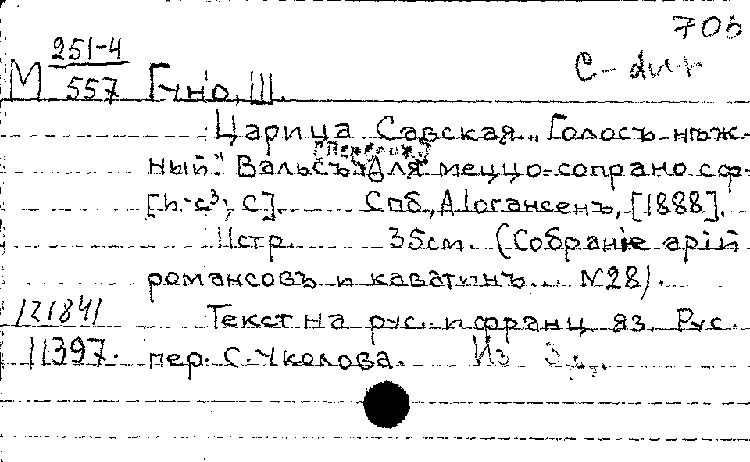 705
251-4
М 557 Гуно, Ш.
C-dur
Царица Савская. „Голосъ нѣж-
ный." Вальсъ. Для меццо-сопрано с ф-
[п. - с³; С]. Спб., А. Iогансенъ, [1888].
11стр. 35см. (Собранiе арiй
романсовъ и каватинъ... №28).
121841 Текст на рус. и франц. яз. Рус.
11397. пер. С. Уколова. Из